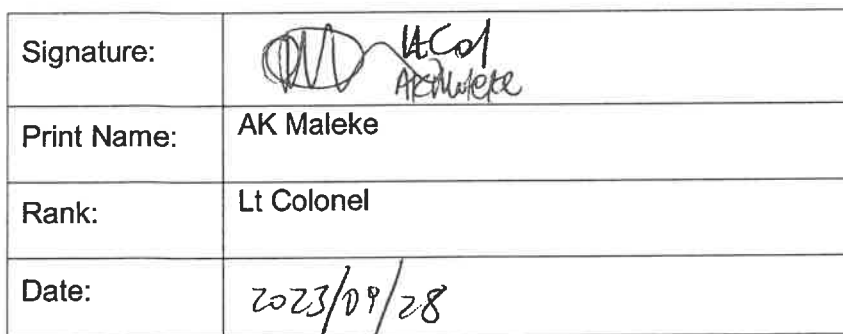 Signature: Lt Col
AK Maleke
Print Name: AK Maleke
Rank: Lt Colonel
Date: 2023/09/28